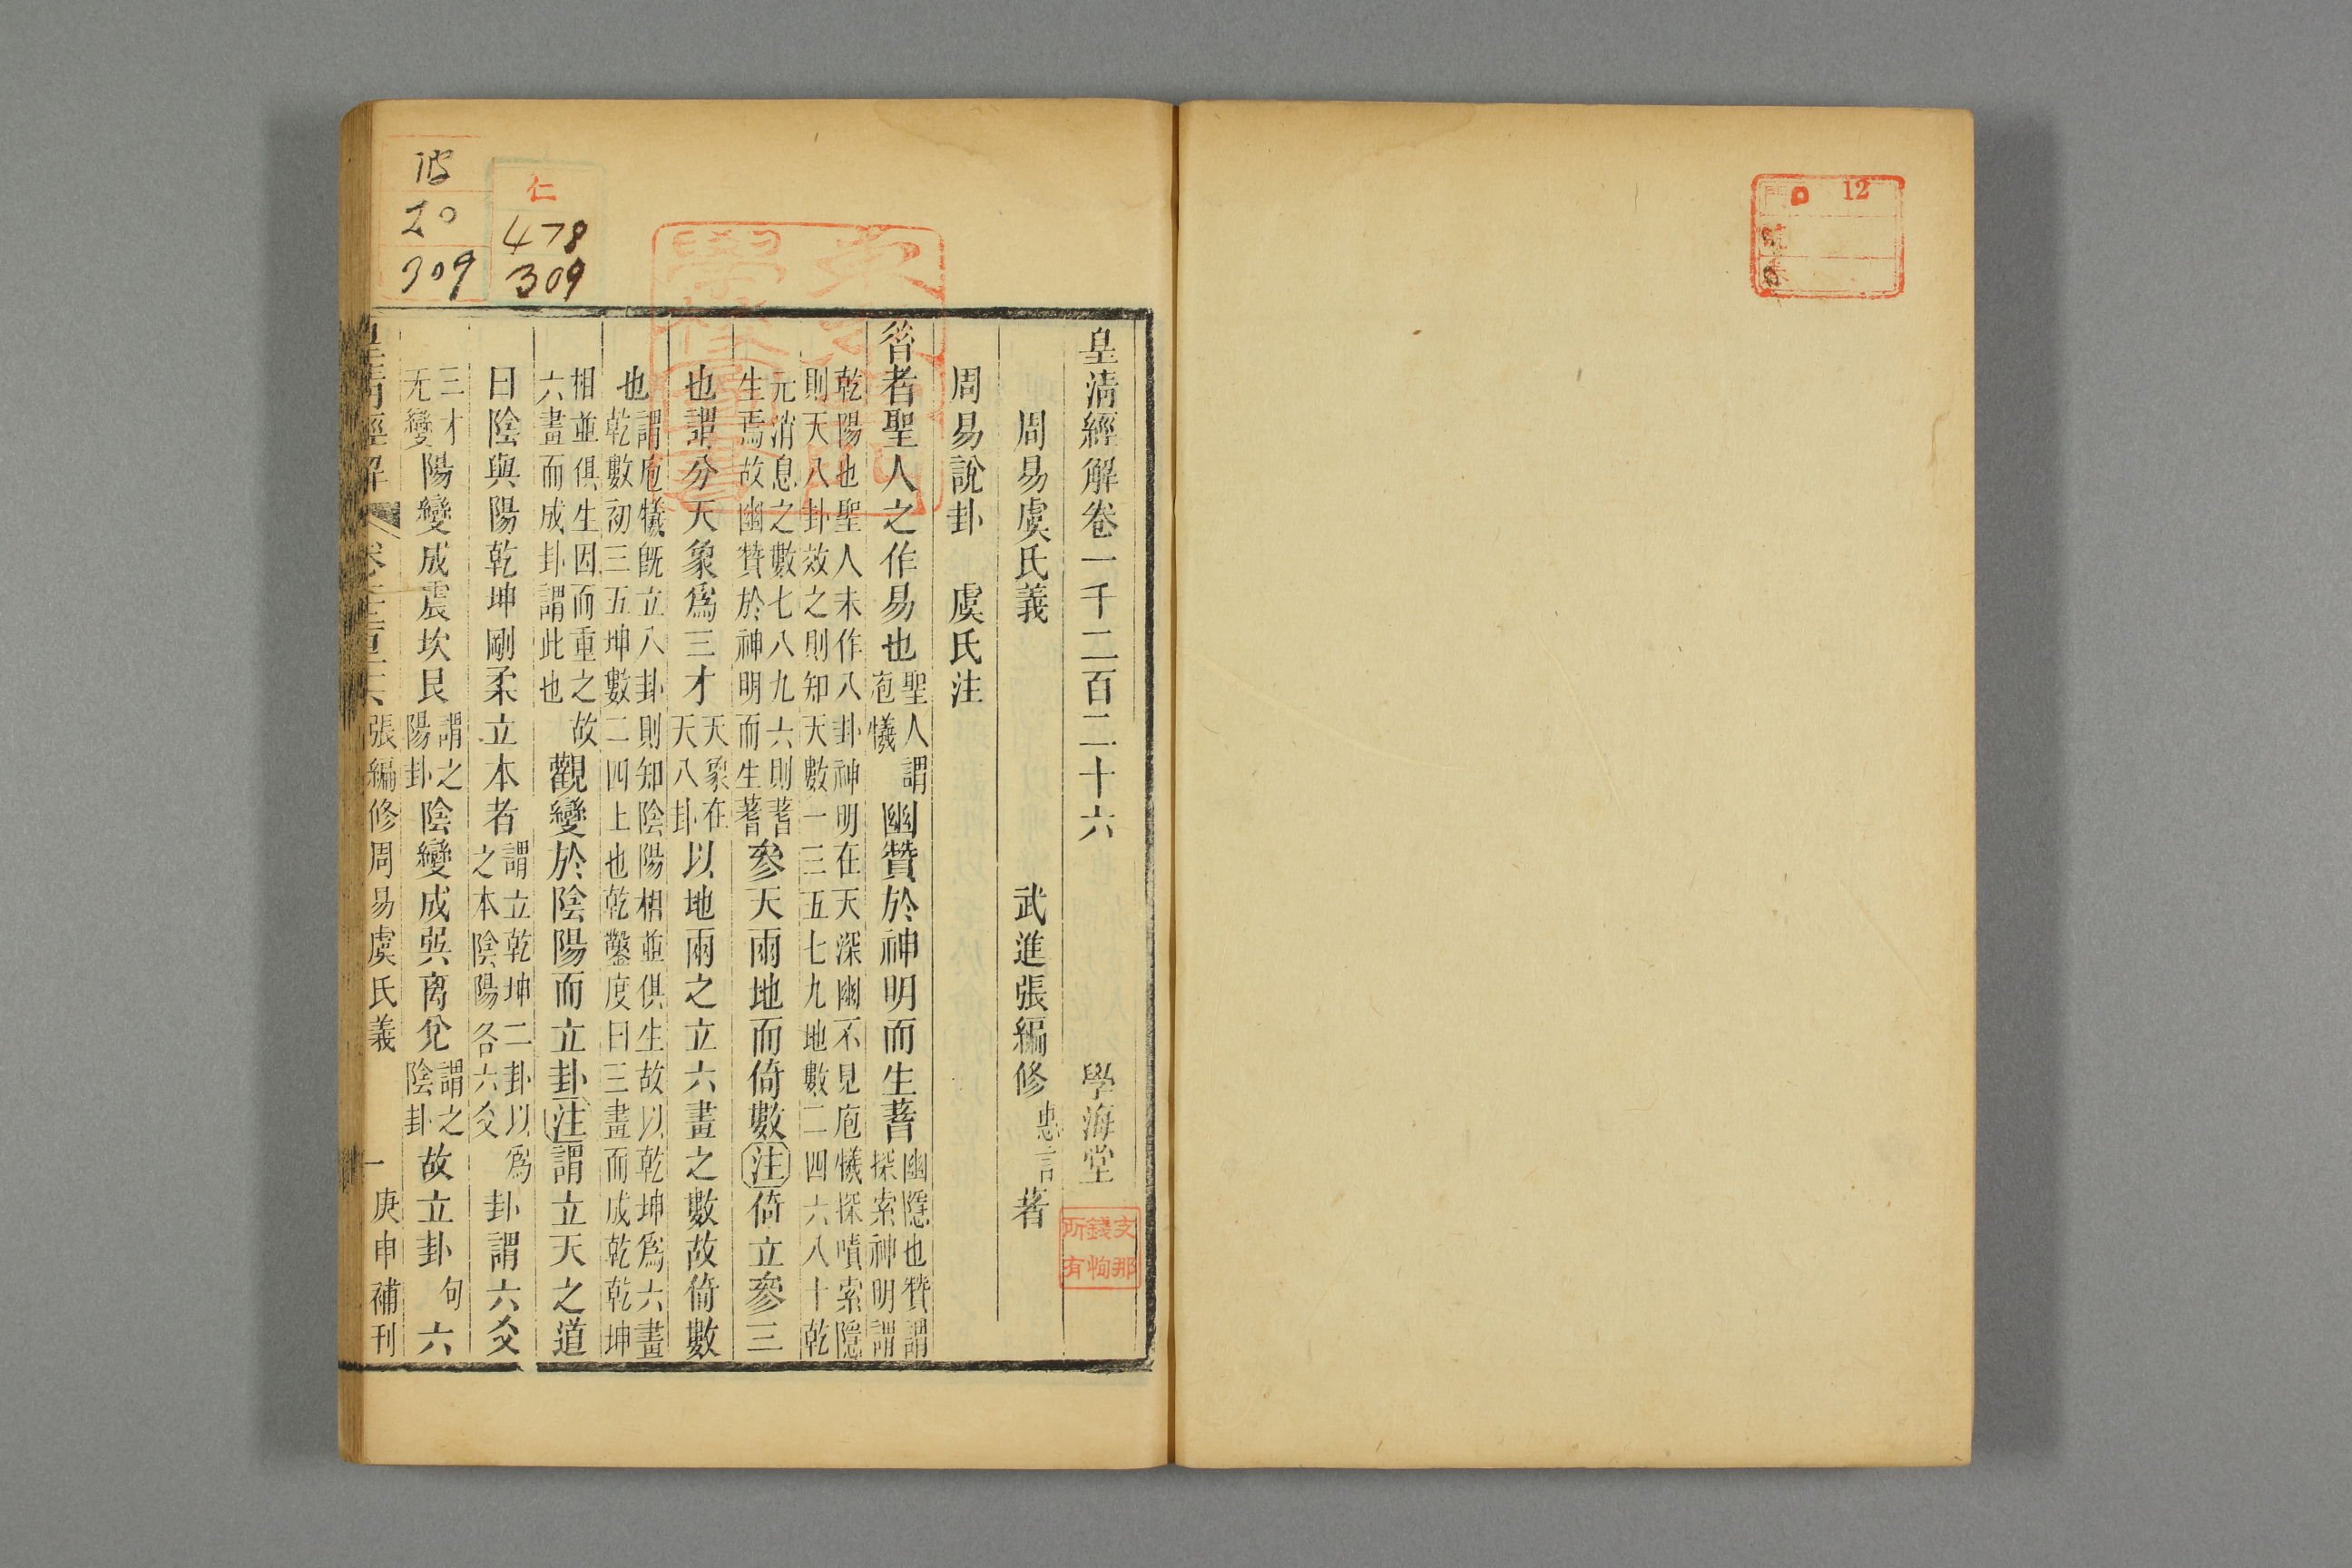 12
皇清經解卷一千二百二十六 學海堂
支那
錢恂
所有
周易虞氏義 武進張編修惠言著
周易說卦 虞氏注
昝者聖人之作易也聖人謂庖犧幽贊於神明而生蓍幽隱也贊謂探索神明謂
乾陽也聖人未作八卦神明在天深幽不見庖犧探嘖索隱
則天八卦效之則知天數一三五七九地數二四六八十乾
元消息之數七八九六則蓍
生焉故幽贊於神明而生蓍參天兩地而倚數注倚立參三
也謂分天象爲三才天象在天八卦以地兩之立六畫之數故倚數
也謂庖犧既立八卦則知陰陽相並俱生故以乾坤爲六畫
乾數初三五坤數二四上也乾鑿度曰三畫而成乾乾坤
相並俱生因而重之故
六畫而成卦謂此也觀變於陰陽而立卦注謂立天之道
曰陰與陽乾坤剛柔立本者謂立乾坤二卦以爲之本陰陽各六爻卦謂六爻
三才
无變陽變成震坎艮謂之陽卦陰變成巽离兌謂之陰卦故立卦句六
張編修周易虞氏義 一 庚申補刊
仁
478
309
20
309